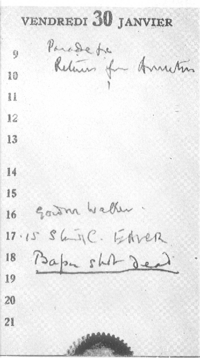 VENDREDI 30 JANVIER
9
10 Return for
11
12
13
14
15
16 Gordon Walker.
17.15
18 Bapu shot dead
19
20
21